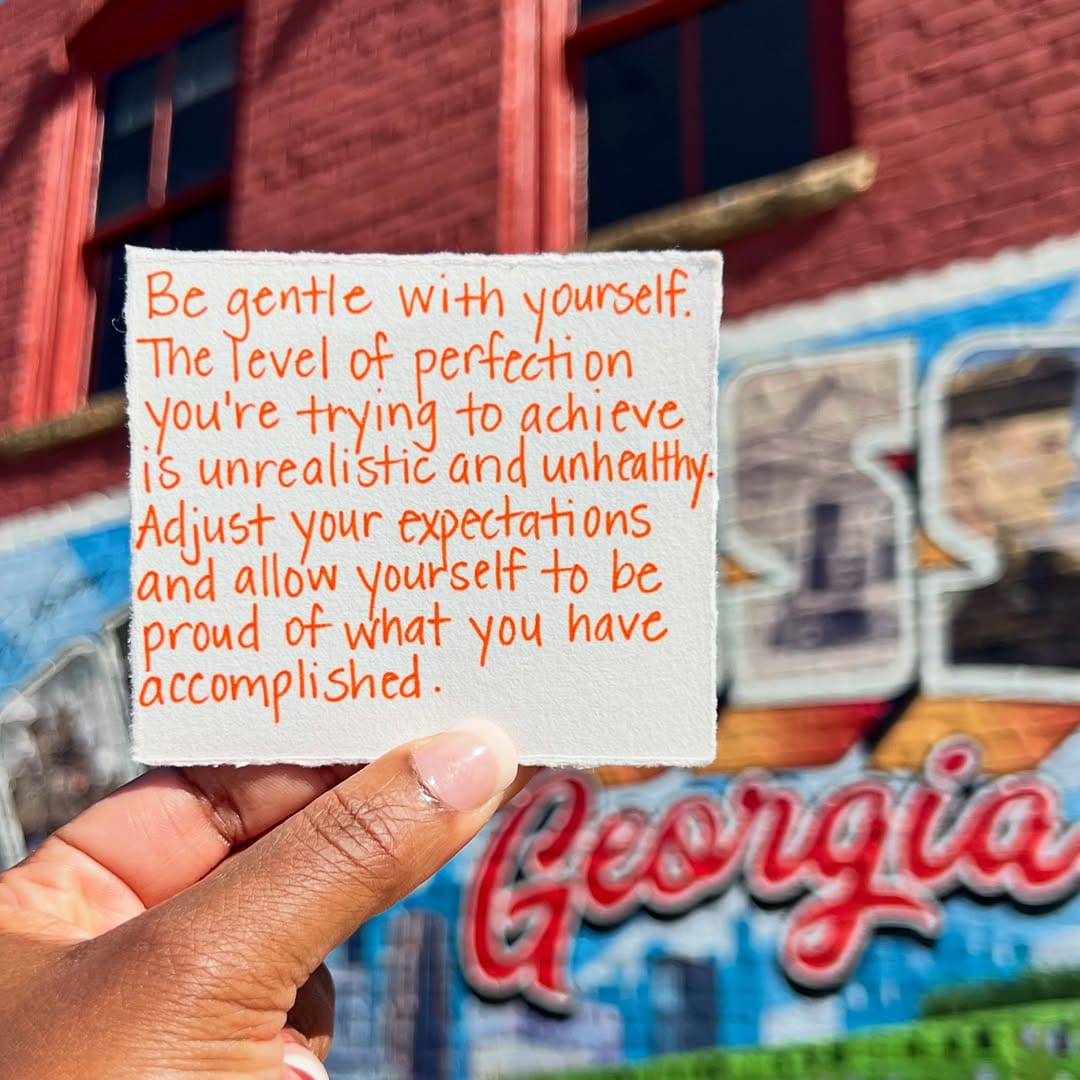 Be gentle with yourself.
The level of perfection
you're trying to achieve
is unrealistic and unhealthy.
Adjust your expectations
and allow yourself to be
proud of what you have
accomplished.
Georgia